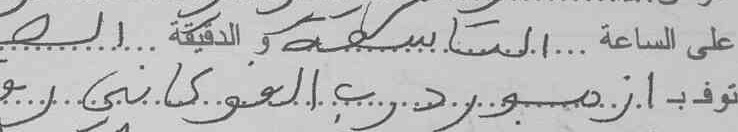 على الساعة ... التاسعة و الدقيقة ... الـ
توفـ بـ ازمور درب الفوكاني